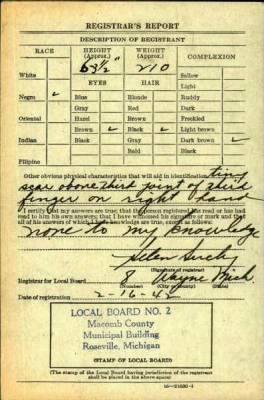 REGISTRAR'S REPORT
DESCRIPTION OF REGISTRANT
RACE HEIGHT (Approx.) WEIGHT (Approx.) COMPLEXION
White 5 3½" 210 Sallow
EYES HAIR Light
Negro ✓ Blue Blonde Ruddy
Gray Red Dark
Oriental Hazel Brown Freckled
Brown ✓ Black ✓ Light brown
Indian Black Gray Dark brown ✓
Bald Black
Filipino
Other obvious physical characteristics that will aid in identification tiny
scar above first joint of third
finger on right hand
I certify that my answers are true; that the person registered has read or has had
read to him his own answers; that I have witnessed his signature or mark and that
all of his answers of which I have knowledge are true, except as follows:
none to my knowledge
Helen
(Signature of registrar)
Registrar for Local Board 8 Wayne Mich
(Number) (City or county) (State)
Date of registration 2-16-42
LOCAL BOARD NO. 2
Macomb County
Municipal Building
Roseville, Michigan
(STAMP OF LOCAL BOARD)
(The stamp of the Local Board having jurisdiction of the registrant
shall be placed in the above space)